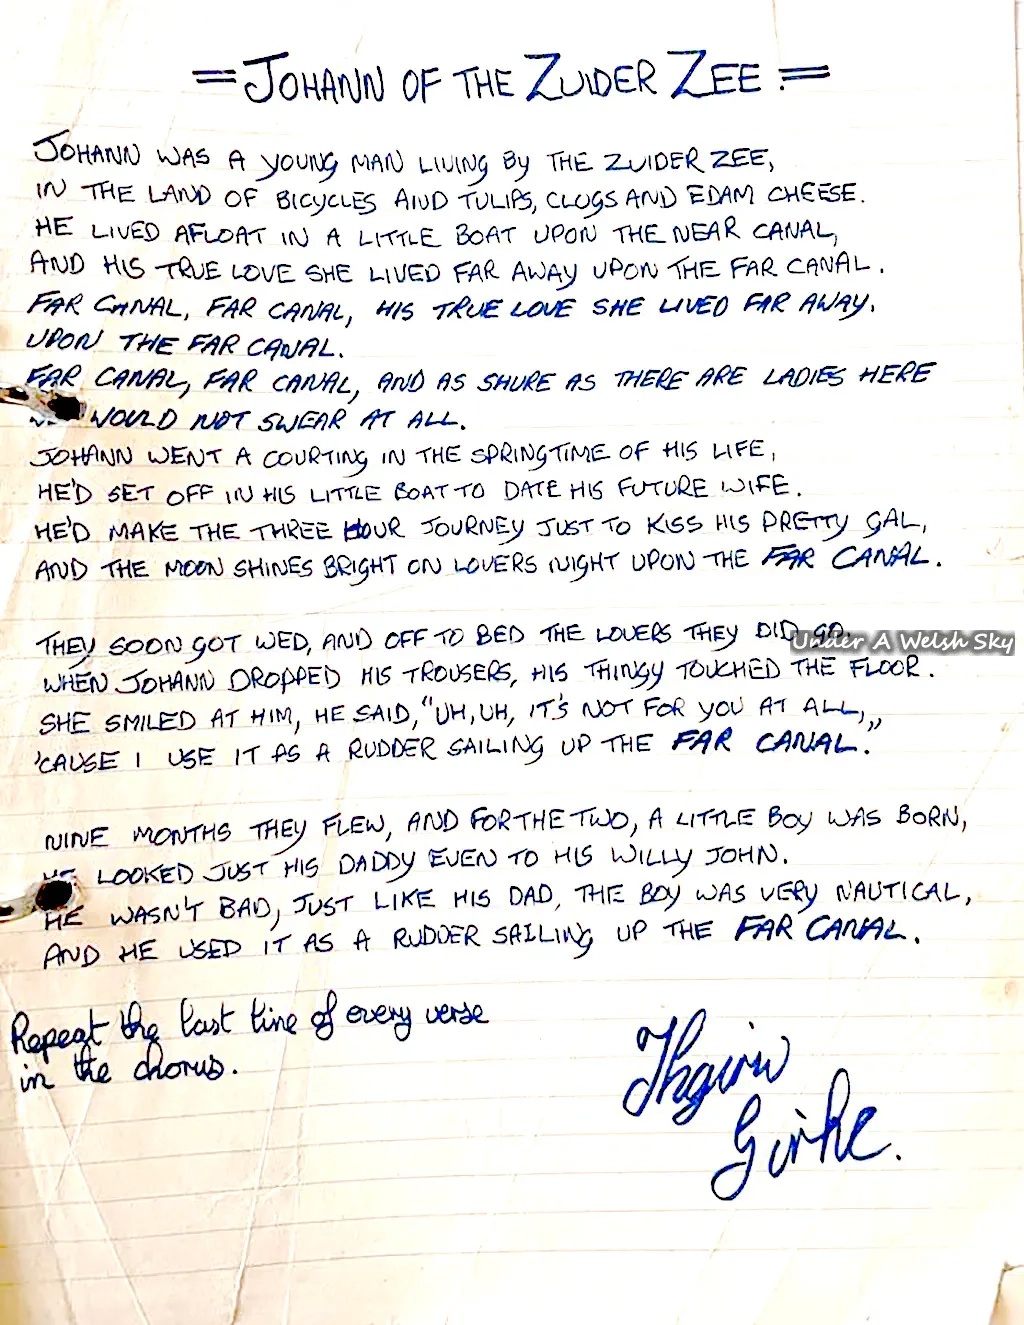 = JOHANN OF THE ZUIDER ZEE. =
JOHANN WAS A YOUNG MAN LIVING BY THE ZUIDER ZEE,
IN THE LAND OF BICYCLES AND TULIPS, CLOGS AND EDAM CHEESE.
HE LIVED AFLOAT IN A LITTLE BOAT UPON THE NEAR CANAL,
AND HIS TRUE LOVE SHE LIVED FAR AWAY UPON THE FAR CANAL.
FAR CANAL, FAR CANAL, HIS TRUE LOVE SHE LIVED FAR AWAY.
UPON THE FAR CANAL.
FAR CANAL, FAR CANAL, AND AS SHURE AS THERE ARE LADIES HERE
WOULD NOT SWEAR AT ALL.
JOHANN WENT A COURTING IN THE SPRINGTIME OF HIS LIFE,
HE'D SET OFF IN HIS LITTLE BOAT TO DATE HIS FUTURE WIFE.
HE'D MAKE THE THREE HOUR JOURNEY JUST TO KISS HIS PRETTY GAL,
AND THE MOON SHINES BRIGHT ON LOVERS NIGHT UPON THE FAR CANAL.
THEY SOON GOT WED, AND OFF TO BED THE LOVERS THEY DID GO.
Under A Welsh Sky
WHEN JOHANN DROPPED HIS TROUSERS, HIS THINGY TOUCHED THE FLOOR.
SHE SMILED AT HIM, HE SAID, "UH, UH, IT'S NOT FOR YOU AT ALL,"
'CAUSE I USE IT AS A RUDDER SAILING UP THE FAR CANAL.
NINE MONTHS THEY FLEW, AND FOR THE TWO, A LITTLE BOY WAS BORN,
HE LOOKED JUST HIS DADDY EVEN TO HIS WILLY JOHN.
HE WASN'T BAD, JUST LIKE HIS DAD, THE BOY WAS VERY NAUTICAL,
AND HE USED IT AS A RUDDER SAILING UP THE FAR CANAL.
Repeat the last line of every verse
in the chorus.